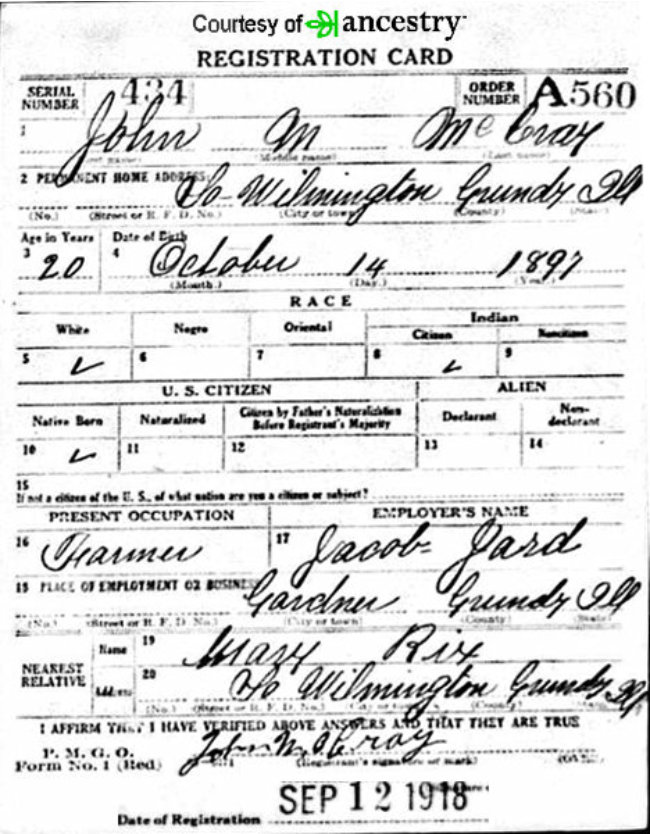 Courtesy of ancestry
REGISTRATION CARD
SERIAL NUMBER 434 ORDER NUMBER A560
1 John M McCray
(First name) (Middle name) (Last name)
2 PERMANENT HOME ADDRESS: So Wilmington Grundy Ill
(No.) (Street or R. F. D. No.) (City or town) (County) (State)
Age in Years Date of Birth
3 20 4 October 14 1897
(Month.) (Day.) (Year.)
RACE
White Negro Oriental Indian
Citizen Noncitizen
5 ✓ 6 7 8 ✓ 9
U. S. CITIZEN ALIEN
Native Born Naturalized Citizen by Father's Naturalization Before Registrant's Majority Declarant Non-declarant
10 ✓ 11 12 13 14
15
If not a citizen of the U. S., of what nation are you a citizen or subject?
PRESENT OCCUPATION EMPLOYER'S NAME
16 Farmer 17 Jacob Jard
18 PLACE OF EMPLOYMENT OR BUSINESS: Gardner Grundy Ill
(No.) (Street or R. F. D. No.) (City or town) (County) (State)
NEAREST RELATIVE Name 19 Mary Rix
Address 20 So Wilmington Grundy Ill
(No.) (Street or R. F. D. No.) (City or town) (County) (State)
I AFFIRM THAT I HAVE VERIFIED ABOVE ANSWERS AND THAT THEY ARE TRUE
P. M. G. O.
Form No. 1 (Red) John McCray
(Registrant's signature or mark)
Date of Registration SEP 12 1918